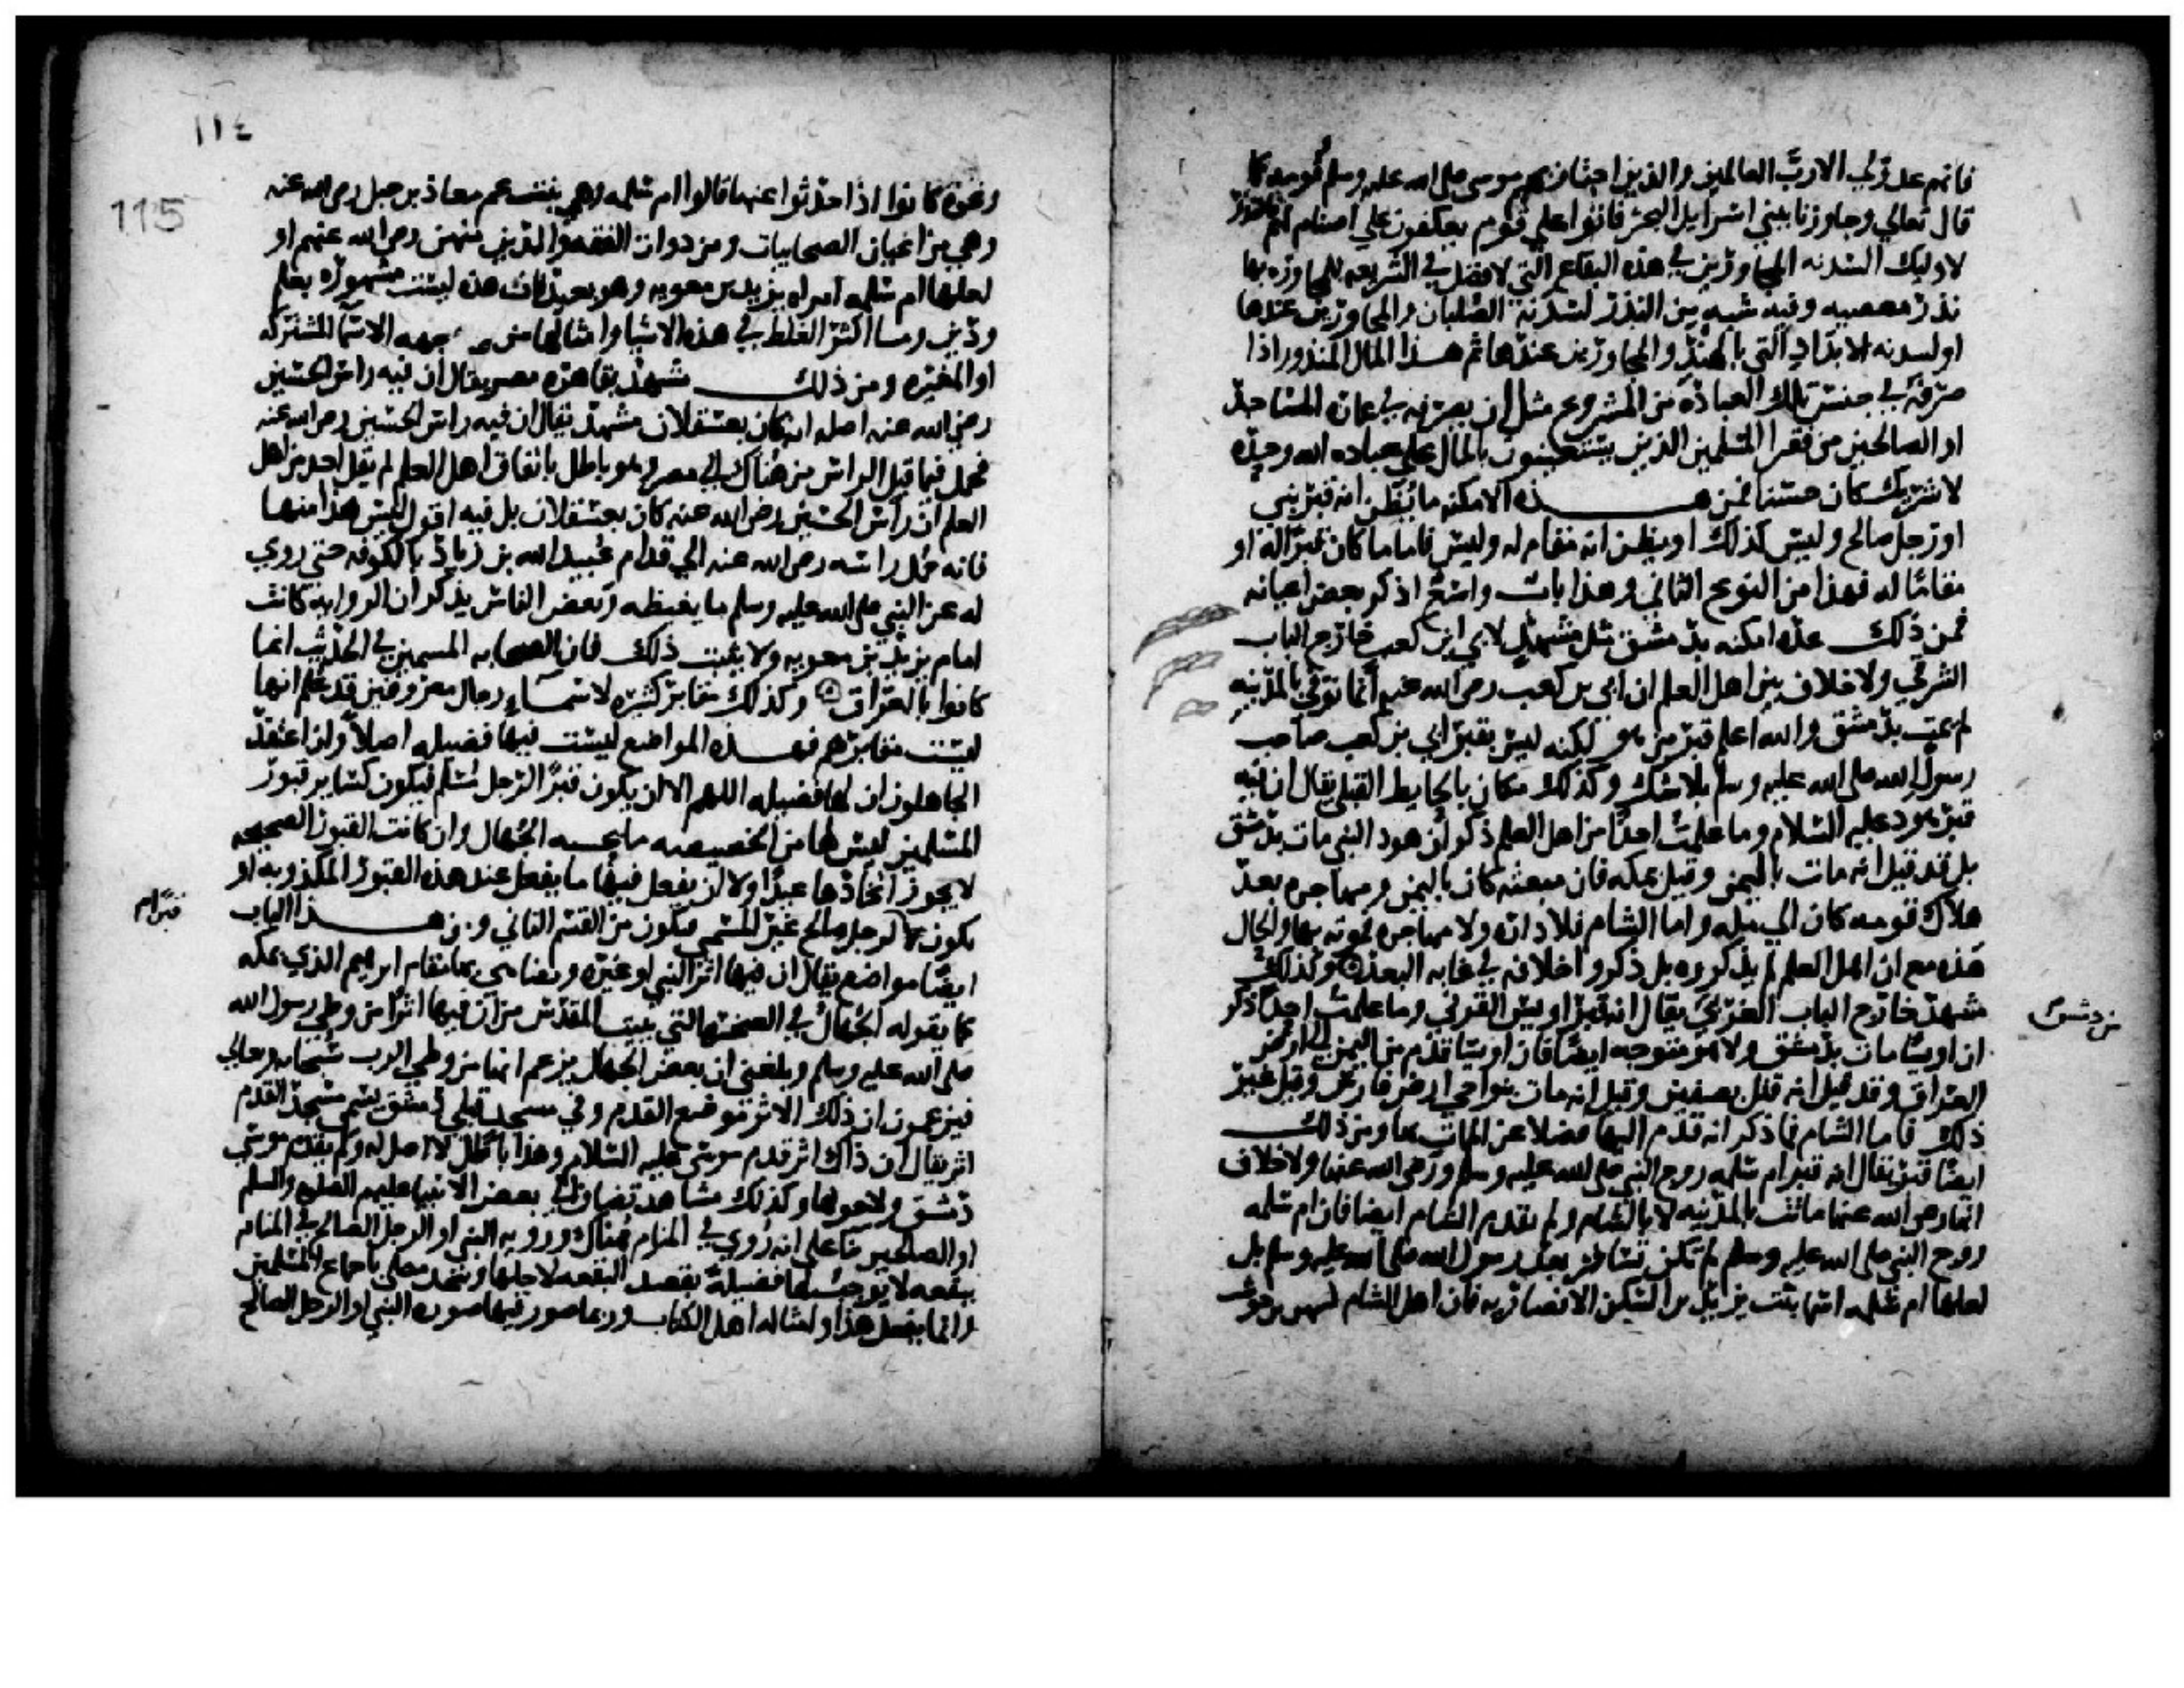 فانهم عدو لي الا رب العالمين والذين اجتاز بهم موسى صلى الله عليه وسلم قومه كما
قال تعالي وجاوزنا ببني اسرايل البحر فاتوا علي قوم يعكفون علي اصنام لهم فالنذر
لاوليك السدنه المجاورين في هذه البقاع التي لا فضل في الشريعه للمجاوره بها
نذر معصيه وفيه شبه من النذر لسدنة الصلبان والمجاورين عندها
او لسدنه الابداد التي بالهند والمجاورين عندها ثم هذا المال المنذور اذا
صرفه في جنس تلك العباده من المشروع مثل ان يصرفه في عماره المساجد
او الصالحين من فقرا المسلمين الذين يستعينون بالمال علي عباده الله وحده
لا شريك كان حسنا فمن هذه الامكنه ما يظن انه قبر نبي
او رجل صالح وليس كذلك او يظن انه مقام له وليس فاما ما كان قبرا له او
مقاما له فهذا من النوع الثاني وهذا باب واسع اذكر بعض اعيانه
فمن ذلك عده امكنه بدمشق مثل مشهد لابي ابن كعب خارج الباب
الشرقي ولا خلاف بين اهل العلم ان ابي بن كعب رضي الله عنه انما توفي بالمدينه
لم يمت بدمشق والله اعلم قبر من هو لكنه ليس بقبر ابي بن كعب صاحب
رسول الله صلى الله عليه وسلم بلا شك وكذلك مكان بالحايط القبلي يقال ان فيه
قبر هود عليه السلام وما علمت احدا من اهل العلم ذكر ان هود النبي مات بدمشق
بل قد قيل انه مات باليمن وقيل بمكه فان مبعثه كان باليمن ومهاجره بعد
هلاك قومه كان الي مكه واما الشام فلا داره ولا مهاجره فموته بها والحال
هذه مع ان اهل العلم لم يذكروه بل ذكروا خلافه في غايه البعد وكذلك
مشهد خارج الباب الغربي يقال انه قبر اويس القرني وما علمت احدا ذكر
من دمشق
ان اويسا مات بدمشق ولا هو متوجه ايضا فان اويسا قدم من اليمن الي ارض
العراق وقد قيل انه قتل بصفين وقيل انه مات بنواحي ارض فارس وقيل غير
ذلك فاما الشام فما ذكر انه قدم اليها فضلا عن الممات بها ومن ذلك
ايضا قبر يقال انه قبر ام سلمه زوج النبي صلى الله عليه وسلم ورضي الله عنها ولا خلاف
انها رضي الله عنها ماتت بالمدينه لا بالشام ولم تقدم الشام ايضا فان ام سلمه
زوج النبي صلى الله عليه وسلم لم تكن تسافر بعد رسول الله صلى الله عليه وسلم بل
لعلها ام سلمه اسما بنت يزيد بن السكن الانصاريه فان اهل الشام كشهر بن حوشب
١١٤
115
ونحوه كانوا اذا حدثوا عنها قالوا ام سلمه وهي بنت عم معاذ بن جبل رضي الله عنه
وهي من اعيان الصحابيات ومن ذوات الفقه والدين منهن رضي الله عنهم او
لعلها ام سلمه امراه يزيد بن معويه وهو بعيد فان هذه ليست مشهوره بعلم
ودين وما اكثر الغلط في هذه الاشيا وامثالها من جهه الاسما المشتركه
او المغيره ومن ذلك مشهد بقاهره مصر يقال ان فيه راس الحسين
رضي الله عنه اصله انه كان بعسقلان مشهد يقال ان فيه راس الحسين رضي الله عنه
فحمل فيما قيل الراس من هناك الي مصر وهو باطل باتفاق اهل العلم لم يقل احد من اهل
العلم ان راس الحسين رضي الله عنه كان بعسقلان بل فيه اقوال ليس هذا منها
فانه حمل راسه رضي الله عنه الي قدام عبيد الله بن زياد بالكوفه حتي روي
له عن النبي صلى الله عليه وسلم ما يغيظه وبعض الناس يذكر ان الروايه كانت
امام يزيد بن معويه ولا يثبت ذلك فان الصحابه المسمين في الحديث انما
كانوا بالعراق وكذلك مقابر كثيره لاسماء رجال معروفين قد علم انها
ليست مقابرهم فهذه المواضع ليست فيها فضيله اصلا وان اعتقد
الجاهلون ان لها فضيله اللهم الا ان يكون قبرا لرجل مسلم فيكون كساير قبور
المسلمين ليس لها من الخصيصه ما يحسبه الجهال وان كانت القبور الصحيحه
لا يجوز اتخاذها عيدا ولا ان يفعل فيها ما يفعل عند هذه القبور المكذوبه او
قبر ام
يكون بها لرجل صالح غير المسمي فيكون من القسم الثاني ومن هذا الباب
ايضا مواضع يقال ان فيها اثر النبي او غيره ويضاهي بها مقام ابرهيم الذي بمكه
كما يقوله الجهال في الصخره التي ببيت المقدس من ان فيها اثرا من وطي رسول الله
صلى الله عليه وسلم وبلغني ان بعض الجهال يزعم انها من وطي الرب سبحانه وتعالي
فيزعمون ان ذلك الاثر موضع القدم وفي مسجد قبلي دمشق يسمي مسجد القدم
اثر يقال ان ذاك اثر قدم موسي عليه السلام وهذا باطل لا اصل له ولم يقدم موسي
دمشق ولا حولها وكذلك مشاهد تضاف الي بعض الانبيا عليهم الصلوه والسلم
او الصالحين بنا علي انه روي في المنام هناك ورويه النبي او الرجل الصالح في المنام
ببقعه لا يوجب لها فضيلة تقصد البقعه لاجلها وتتخذ مصلي باجماع المسلمين
وانما يفعل هذا وامثاله اهل الكتاب وربما صور فيها صوره النبي او الرجل الصالح